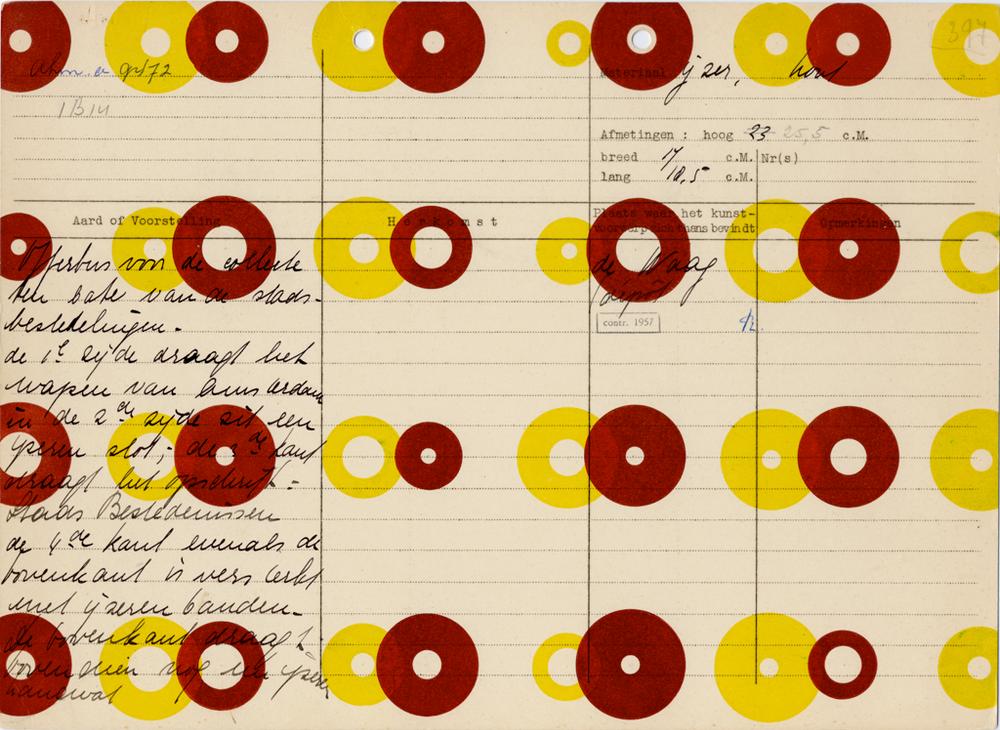 397
Materiaal ijzer, hout
1B14
Afmetingen : hoog 23 25,5 c.M.
breed 17 c.M. Nr(s)
lang 18,5 c.M.
Aard of Voorstelling
Herkomst
Plaats waar het kunst-
voorwerp zich thans bevindt
Opmerkingen
Offerbus voor de collecte
ten bate van de stads-
bestedelingen.
de 1e zijde draagt het
wapen van Amsterdam
in de 2de zijde zit een
ijzeren slot; de 3de kant
draagt het opschrift:
Stads Bestedenissen
de 4de kant evenals de
bovenkant is versterkt
met ijzeren banden.
de bovenkant draagt
bovendien nog een ijzeren
de Waag
depôt
contr. 1957